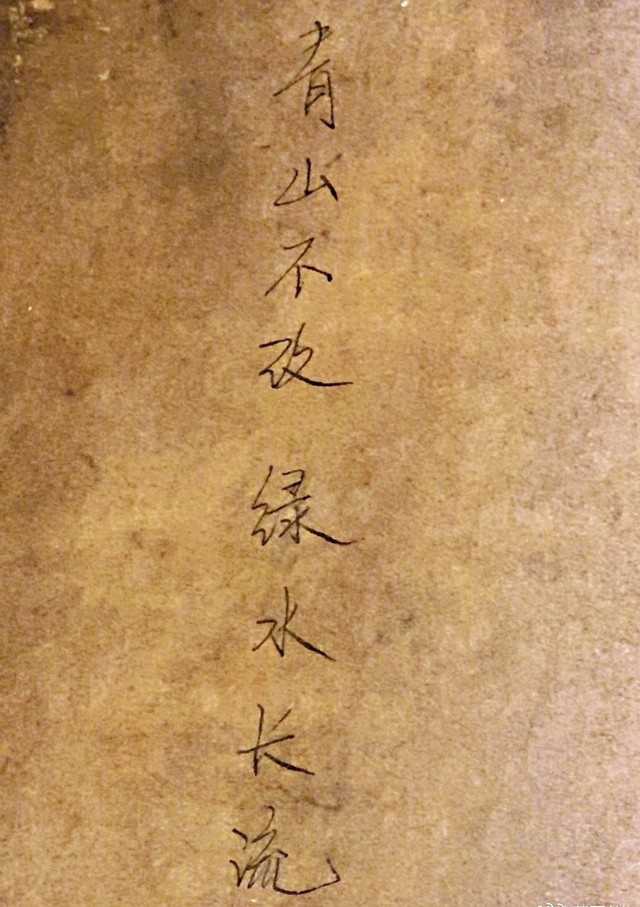 青山不改 绿水长流